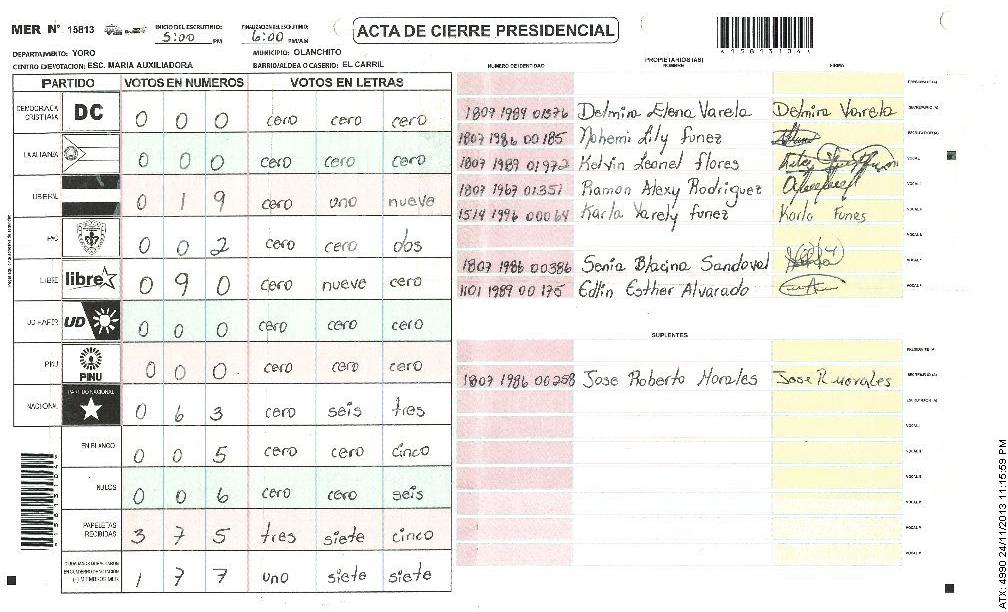 MER Nº 15813
INICIO DEL ESCRUTINIO: 5:00 PM
FINALIZACION DEL ESCRUTINIO: 6:00 PM/AM
ACTA DE CIERRE PRESIDENCIAL
DEPARTAMENTO: YORO
MUNICIPIO: OLANCHITO
CENTRO D/VOTACION: ESC. MARIA AUXILIADORA
BARRIO/ALDEA O CASERIO: EL CARRIL
PARTIDO VOTOS EN NUMEROS VOTOS EN LETRAS
DEMOCRACIA CRISTIANA DC 0 0 0 cero cero cero
LA ALIANZA 0 0 0 cero cero cero
LIBERAL 0 1 9 cero uno nueve
0 0 2 cero cero dos
LIBRE libre 0 9 0 cero nueve cero
UD FAPER UD 0 0 0 cero cero cero
PINU PINU 0 0 0 cero cero cero
NACIONAL PARTIDO NACIONAL 0 6 3 cero seis tres
EN BLANCO 0 0 5 cero cero cinco
NULOS 0 0 6 cero cero seis
PAPELETAS RECIBIDAS 3 7 5 tres siete cinco
1 7 7 uno siete siete
PROPIETARIOS (AS)
NUMERO DE IDENTIDAD NOMBRE FIRMA
PRESIDENTE (A)
1807 1984 01376 Delmira Elena Varela Delmira Varela SECRETARIO (A)
1807 1986 00185 Nohemi Lily funez ESCRUTADOR (A)
1807 1989 01972 Kelvin Leonel flores VOCAL I
1807 1967 01351 Ramon Alexy Rodriguez VOCAL II
1514 1996 00064 Karla Varely funez Karla Funes VOCAL III
VOCAL IV
1807 1986 00386 Senia Blacina Sandoval VOCAL V
1101 1989 00175 Edlin Esther Alvarado
SUPLENTES
PRESIDENTE (A)
1807 1986 00258 Jose Roberto Morales Jose R Morales SECRETARIO (A)
ESCRUTADOR (A)
VOCAL I
VOCAL II
VOCAL III
VOCAL IV
VOCAL V
ATX: 4990 24/11/2013 11:15:59 PM